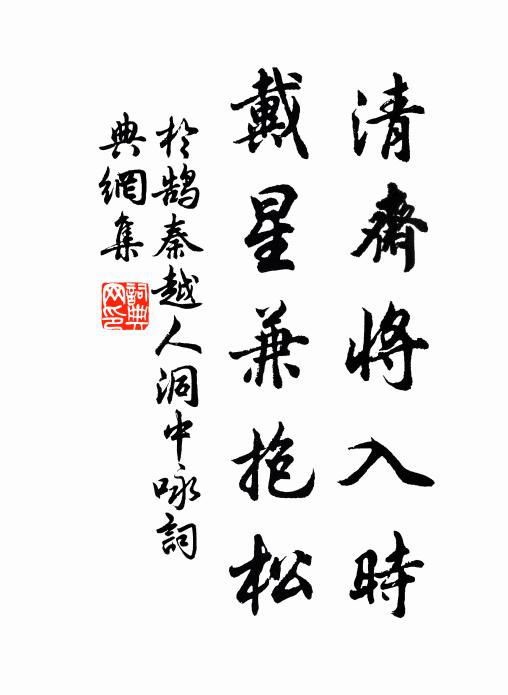 清齋將入時
戴星兼抱松
於鵠秦越人洞中咏詞
典網集
詞典
网印